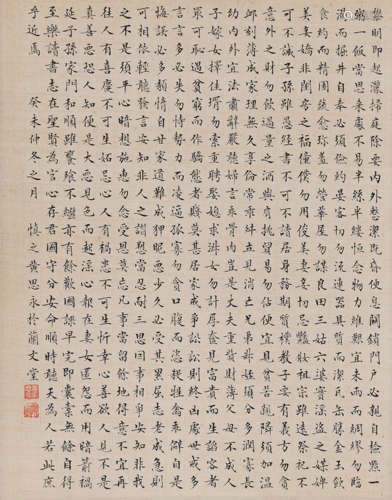 黎明即起灑掃庭除要內外整潔既昏便息關鎖門戶必親自檢點一
粥一飯當思來處不易半絲半縷恆念物力維艱宜未雨而綢繆勿臨
渴而掘井自奉必須儉約宴客切勿流連器具質而潔瓦缶勝金玉飲
食約而精園蔬愈珍饈勿營華屋勿謀良田三姑六婆實淫盜之媒婢
美妾嬌非閨房之福童僕勿用俊美妻妾切忌豔妝祖宗雖遠祭祀不
可不誠子孫雖愚經書不可不讀居身務期質樸教子要有義方勿貪
意外之財勿飲過量之酒與肩挑貿易勿佔便宜見貧苦親鄰須加溫
卹刻薄成家理無久享倫常乖舛立見消亡兄弟叔侄須分多潤寡長
幼內外宜法肅辭嚴聽婦言乖骨肉豈是丈夫重貲財薄父母不成人
子嫁女擇佳壻勿索重聘娶媳求淑女勿計厚奩見富貴而生諂容者
最可恥遇貧窮而作驕態者賤莫甚居家戒爭訟訟則終凶處世戒多
言言多必失勿恃勢力而凌逼孤寡勿貪口腹而恣殺牲禽乖僻自是
悔誤必多頹惰自甘家道難成狎昵惡少久必受其累屈志老成急則
可相依輕聽發言安知非人之譖愬當忍耐三思因事相爭安知非我
之不是須平心暗想施惠勿念受恩莫忘凡事當留餘地得意不宜再
往人有喜慶不可生妒忌心人有禍患不可生忻幸心善欲人見不是
真善惡恐人知便是大惡見色而起淫心報在妻女匿怨而用暗箭禍
延子孫家門和順雖饔飧不繼亦有餘歡國課早完即囊橐無餘自得
至樂讀書志在聖賢為官心存君國守分安命順時聽天為人若此庶
乎近焉 癸未仲冬之月 慎之黃思永於蘭文堂